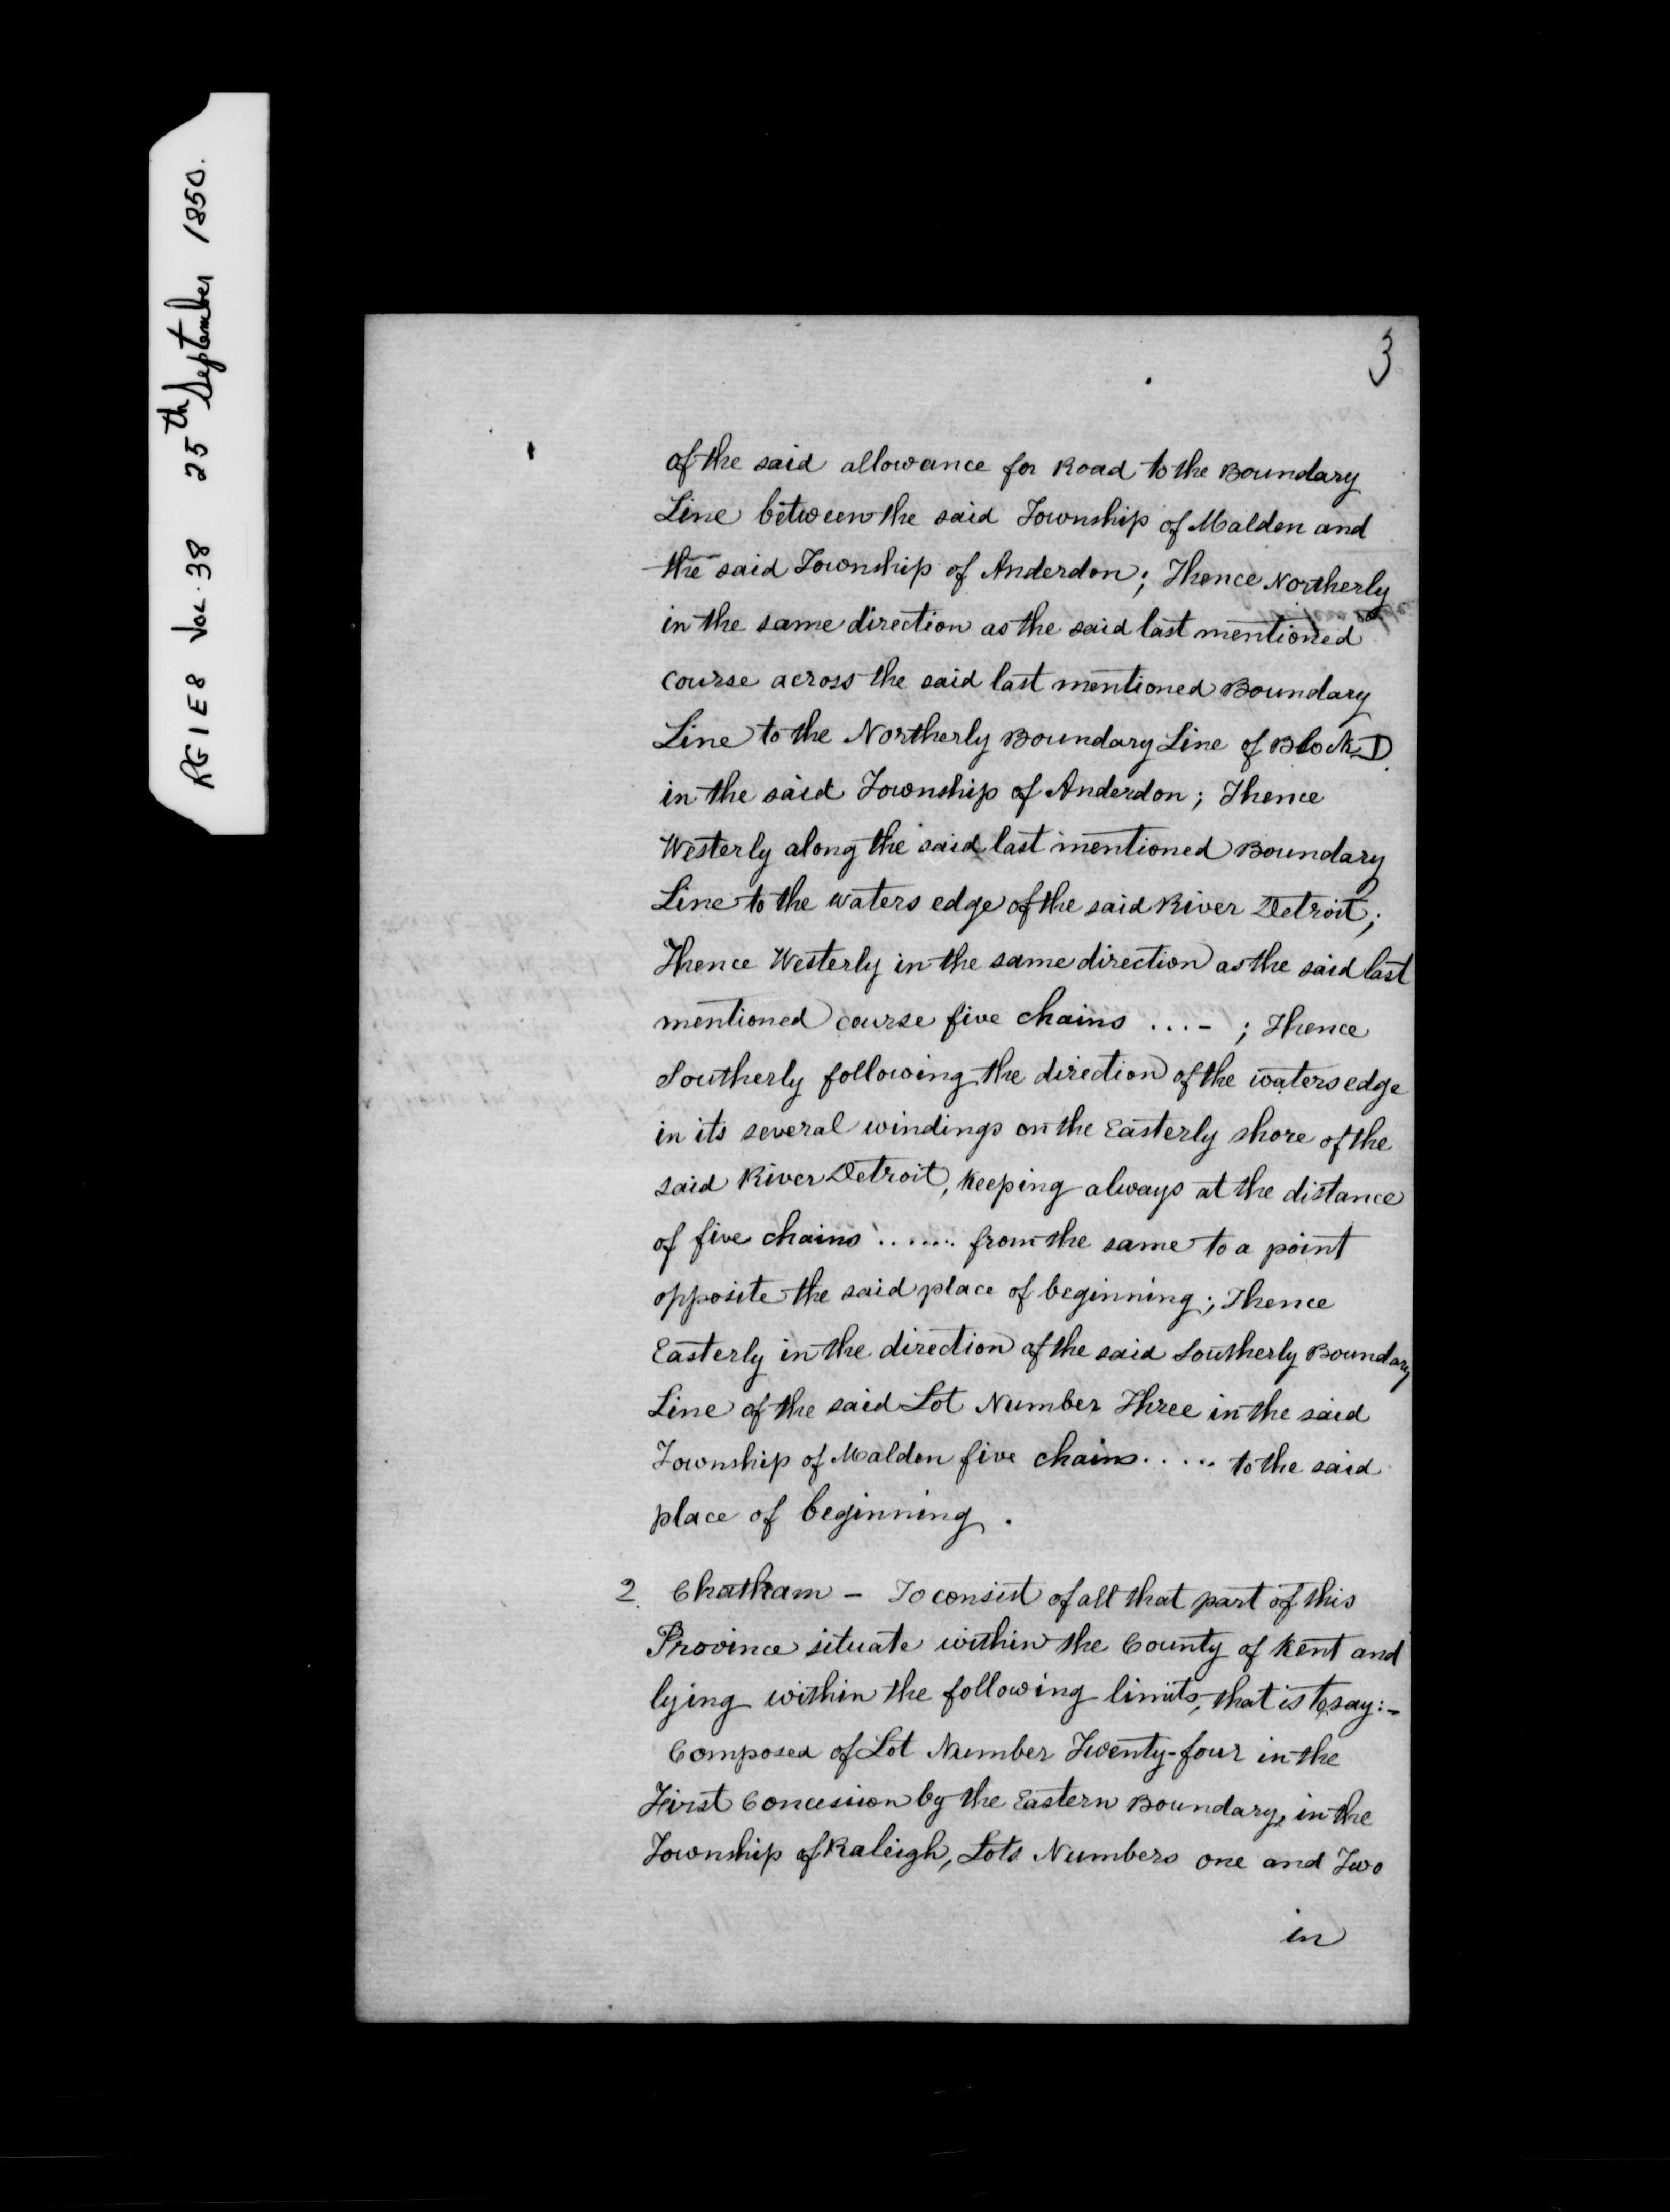 RG 1 E 8 Vol. 38 25th September 1850.
3
of the said allowance for Road to the Boundary
Line between the said Township of Malden and
the said Township of Anderdon; Thence Northerly
in the same direction as the said last mentioned
course across the said last mentioned Boundary
Line to the Northerly Boundary Line of Block D
in the said Township of Anderdon; Thence
Westerly along the said last mentioned Boundary
Line to the waters edge of the said River Detroit;
Thence Westerly in the same direction as the said last
mentioned course five chains ...- ; Thence
Southerly following the direction of the waters edge
in its several windings on the Easterly shore of the
said River Detroit, keeping always at the distance
of five chains ....... from the same to a point
opposite the said place of beginning; Thence
Easterly in the direction of the said Southerly Boundary
Line of the said Lot Number Three in the said
Township of Malden five chains..... to the said
place of beginning.
2. Chatham - To consist of all that part of this
Province situate within the County of Kent and
lying within the following limits, that is to say:-
Composed of Lot Number Twenty-four in the
First Concession by the Eastern Boundary, in the
Township of Raleigh, Lots Numbers one and Two
in